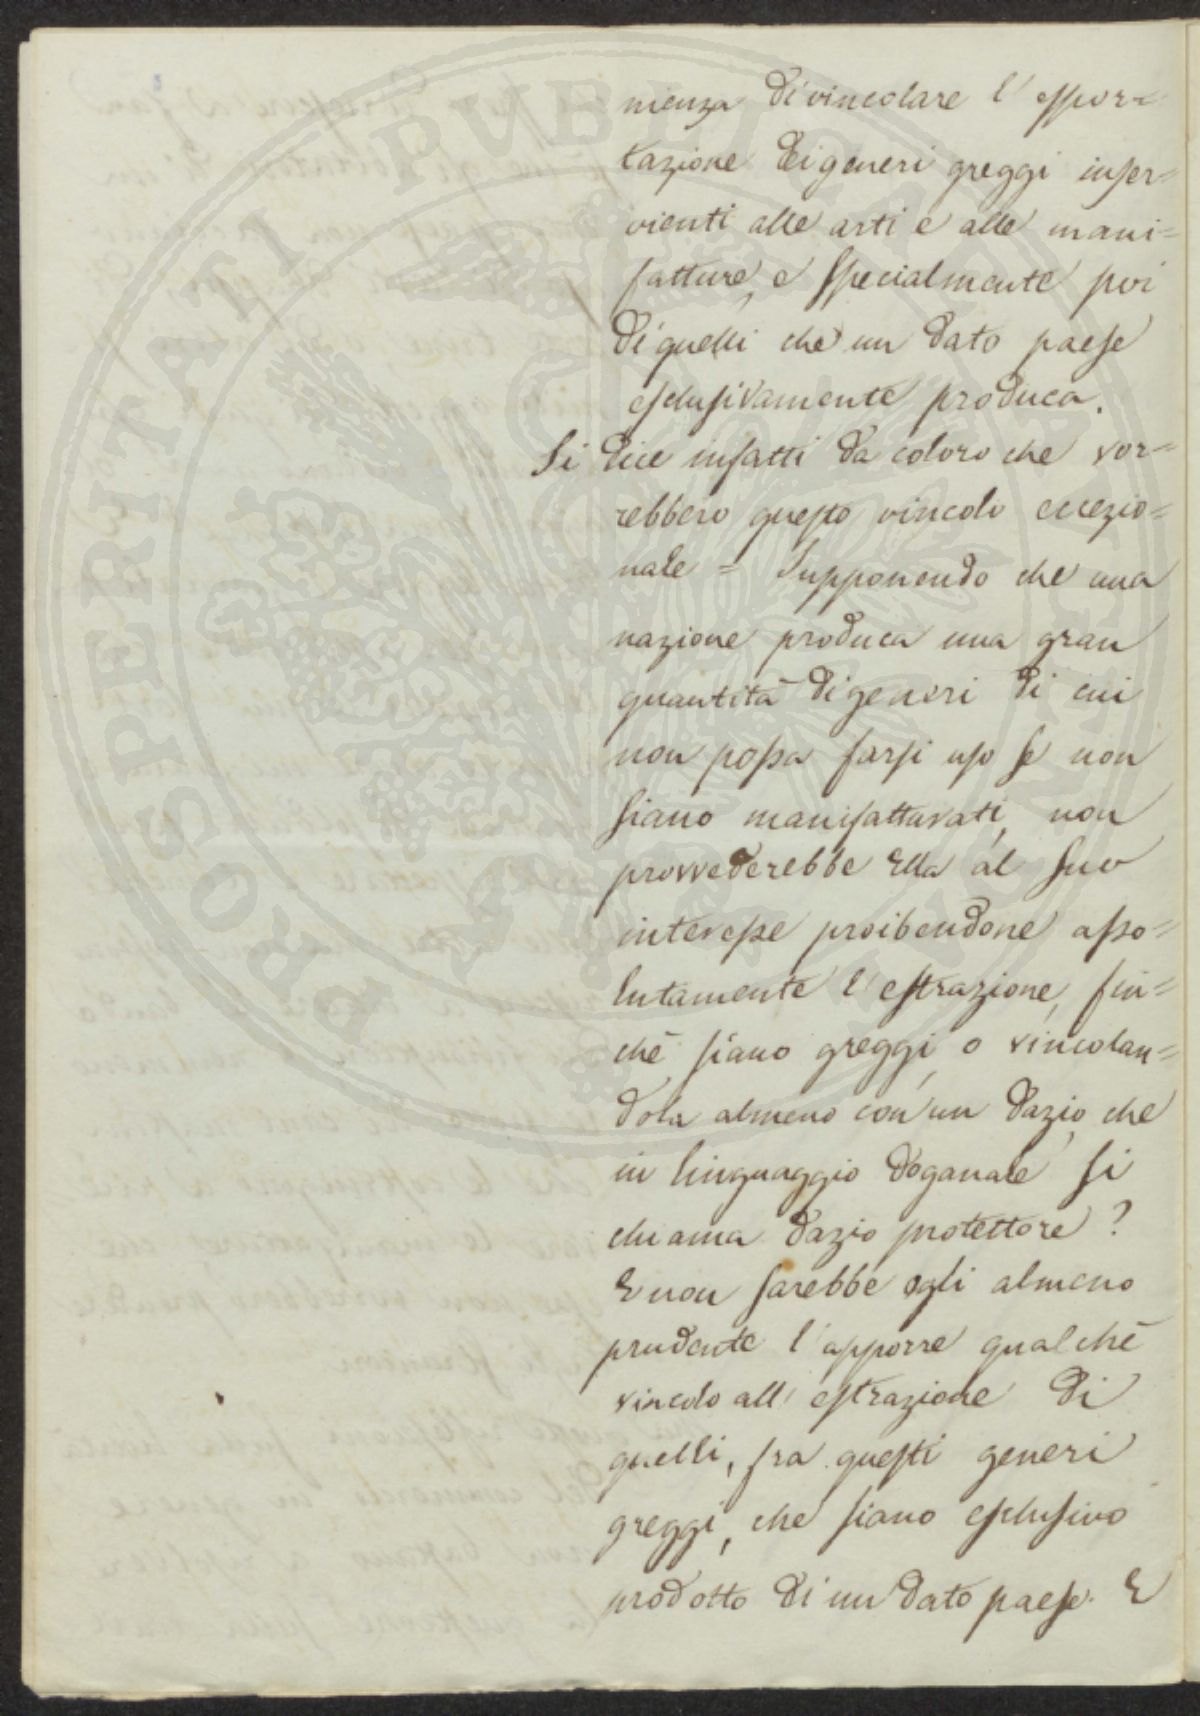 nienza di vincolare l'espor=
tazione dei generi greggi inser=
vienti alle arti e alle mani=
fatture, e specialmente poi
di quelli che un dato paese
esclusivamente produca.
Si dice infatti da coloro che vor=
rebbero questo vincolo eccezio=
nale = Supponendo che una
nazione produca una gran
quantità di generi di cui
non possa farsi uso se non
siano manifatturati, non
provvederebbe Ella al suo
interesse proibendone asso=
lutamente l'estrazione, fin=
chè siano greggi, o vincolan=
dola almeno con un dazio, che
in linguaggio doganale si
chiama dazio protettore?
E non sarebbe egli almeno
prudente l'apporre qualchè
vincolo all'estrazione di
quelli, fra questi generi
greggi, che siano esclusivo
prodotto di un dato paese. E
PROSPERITATI PVBLICAE